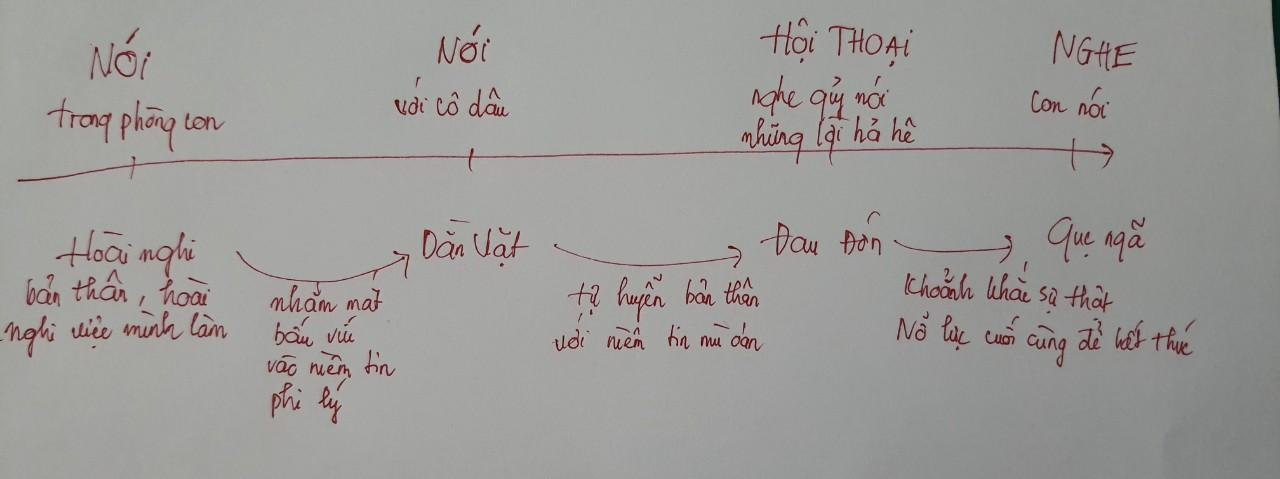 NÓI
trong phòng con
NÓI
với cô dâu
HỘI THOẠI
nghe quỷ nói
những lời hả hê
NGHE
con nói
Hoài nghi
bản thân, hoài
nghi việc mình làm
nhắm mắt
bấu víu
vào niềm tin
phi lý
Dằn Vặt
tự huyễn bản thân
với niềm tin mù oán
Đau Đớn
Khoảnh khắc sự thật
Nỗ lực cuối cùng để kết thúc
Gục ngã